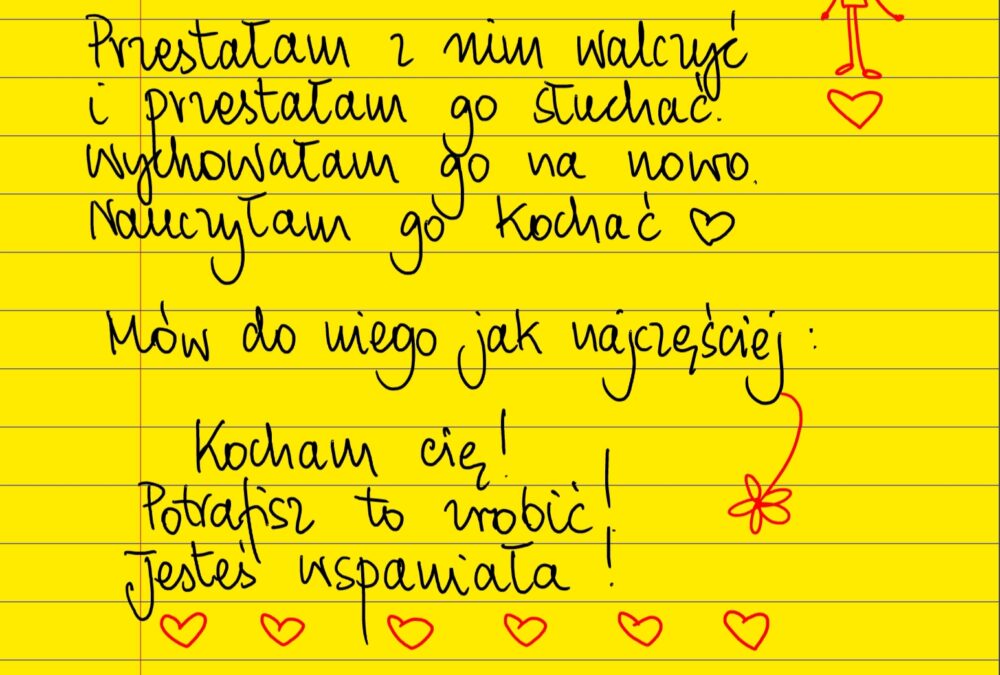 Przestałam z nim walczyć
i przestałam go słuchać.
Wychowałam go na nowo.
Nauczyłam go kochać ♡
Mów do niego jak najczęściej:
Kocham cię!
Potrafisz to zrobić!
Jesteś wspaniała!